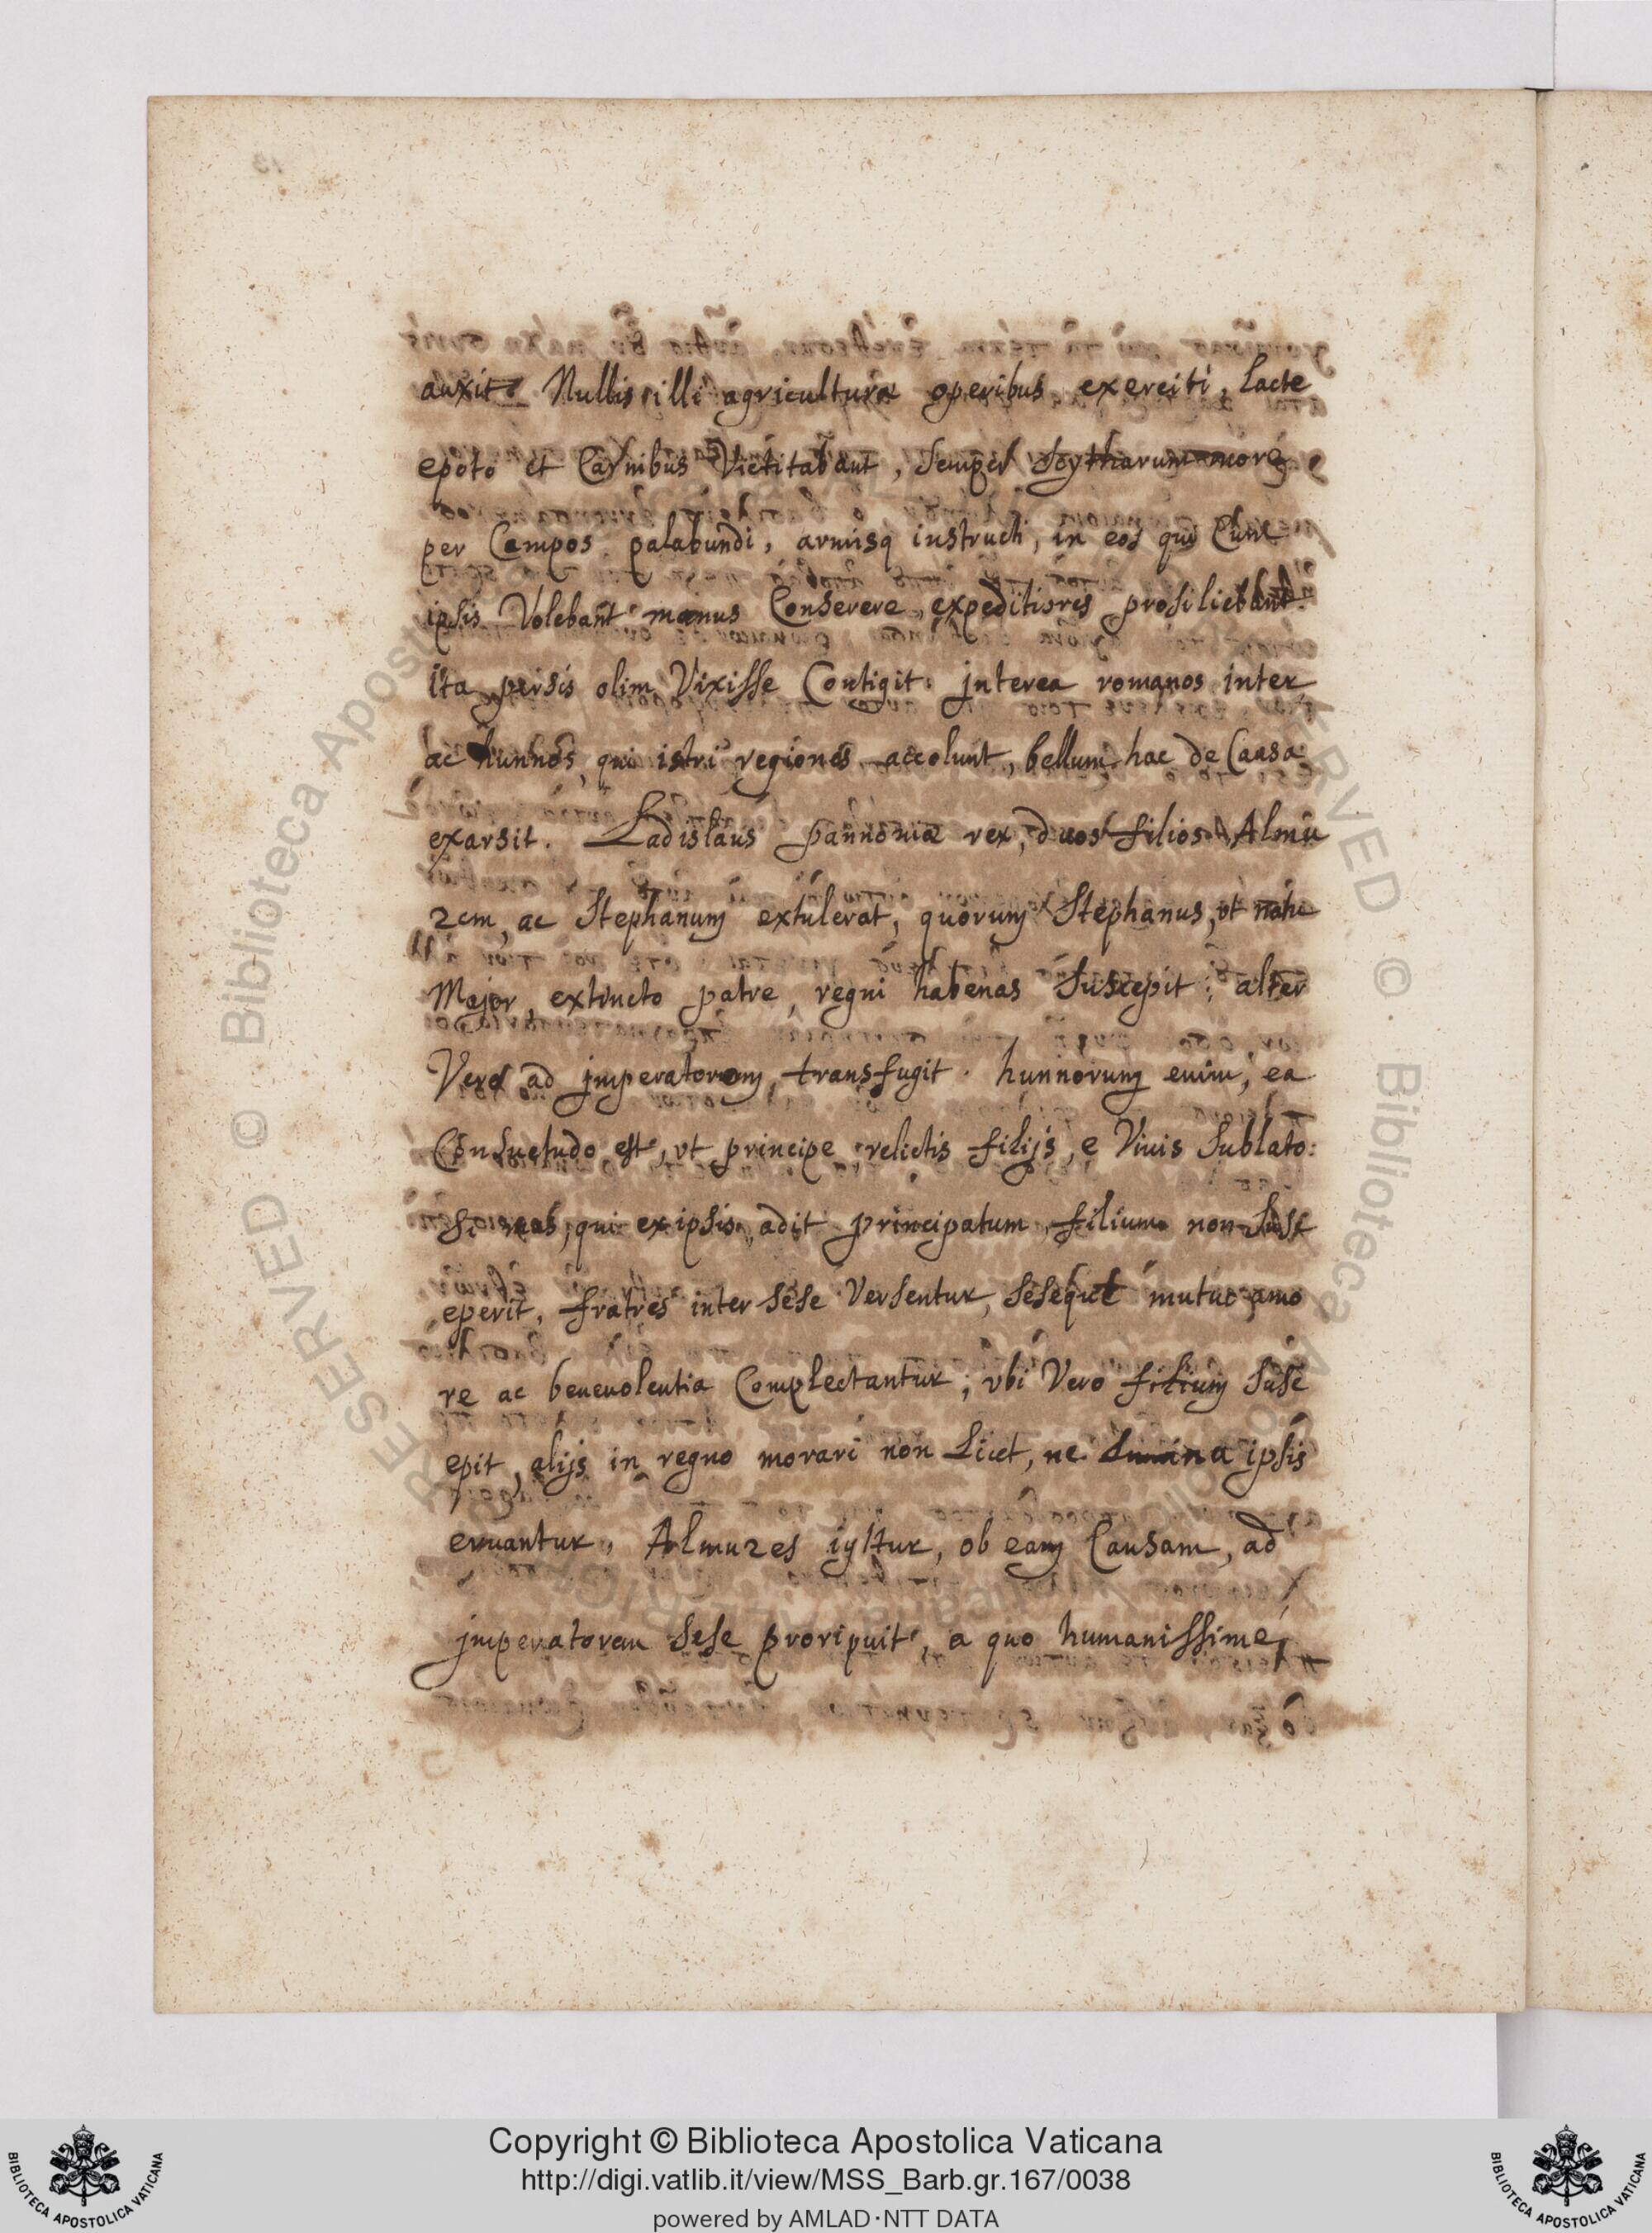 auxit. Nullis illi agriculturæ operibus exerciti, lacte
epoto et Carnibus Victitabant, semper scytharum more
per Campos palabundi, armisq instructi, in eos qui Cum
ipsis Volebant manus Conserere, expeditiores prosiliebant.
ita persis olim Vixisse Contigit. jnterea romanos inter
ac hunnos, qui istri regiones accolunt, bellum hac de Causa
exarsit. Ladislaus pannoniæ rex, duos filios Almu
zem, ac Stephanum extulerat, quorum Stephanus, vt
Major, extincto patre, regni habenas suscepit; alter
Vero ad jmperatorem, transfugit. hunnorum enim, ea
Consuetudo est, vt principe relictis filijs, e Viuis sublato:
qui ex ipsis adit principatum, filium non susc
eperit, fratres inter sese Versentur, seseque mutuo amo
re ac beneuolentia Complectantur; vbi Vero filium susc
epit, alijs in regno morari non licet, ne lumina ipsis
eruantur. Almuzes igitur, ob eam Causam, ad
jmperatorem sese proripuit, a quo humanissime,
RESERVED © Biblioteca Apostolica Vaticana ALL RIGHTS RESERVED © Biblioteca Apostolica Vaticana ALL RIGHTS
Copyright © Biblioteca Apostolica Vaticana
http://digi.vatlib.it/view/MSS_Barb.gr.167/0038
powered by AMLAD·NTT DATA
BIBLIOTECA APOSTOLICA VATICANA
BIBLIOTECA APOSTOLICA VATICANA